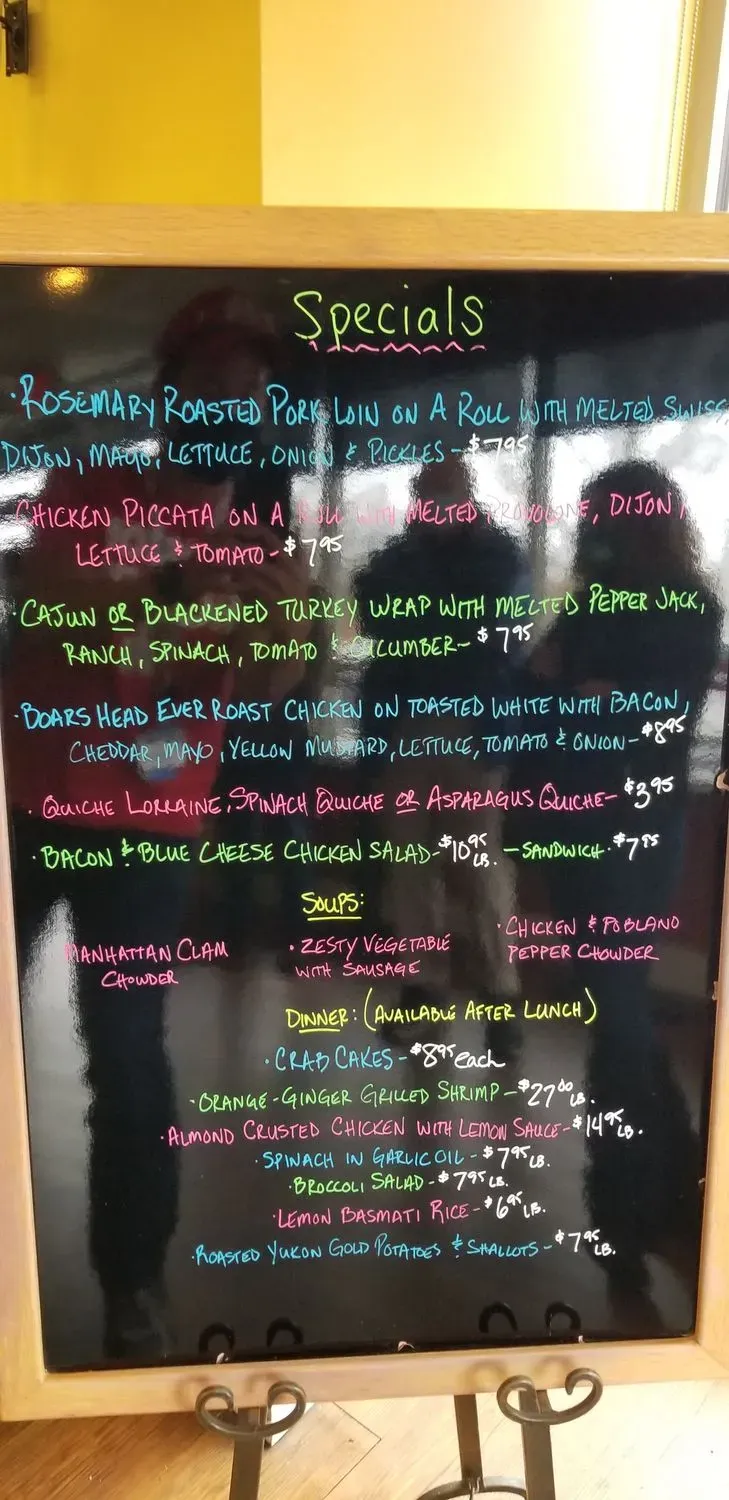 Specials
· ROSEMARY ROASTED PORK LOIN ON A ROLL WITH MELTED SWISS,
DIJON, MAYO, LETTUCE, ONION & PICKLES - $7.95
CHICKEN PICCATA ON A ROLL WITH MELTED PROVOLONE, DIJON,
LETTUCE & TOMATO - $7.95
· CAJUN OR BLACKENED TURKEY WRAP WITH MELTED PEPPER JACK,
RANCH, SPINACH, TOMATO & CUCUMBER - $7.95
· BOARS HEAD EVER ROAST CHICKEN ON TOASTED WHITE WITH BACON,
CHEDDAR, MAYO, YELLOW MUSTARD, LETTUCE, TOMATO & ONION - $8.95
· QUICHE LORRAINE, SPINACH QUICHE OR ASPARAGUS QUICHE - $3.95
· BACON & BLUE CHEESE CHICKEN SALAD - $10.95 LB. - SANDWICH · $7.95
SOUPS:
MANHATTAN CLAM
CHOWDER
· ZESTY VEGETABLE
WITH SAUSAGE
· CHICKEN & POBLANO
PEPPER CHOWDER
DINNER: (AVAILABLE AFTER LUNCH)
· CRAB CAKES - $8.95 each
· ORANGE-GINGER GRILLED SHRIMP - $27.00 LB.
· ALMOND CRUSTED CHICKEN WITH LEMON SAUCE - $14.95 LB.
· SPINACH IN GARLIC OIL - $7.95 LB.
· BROCCOLI SALAD - $7.95 LB.
· LEMON BASMATI RICE - $6.95 LB.
· ROASTED YUKON GOLD POTATOES & SHALLOTS - $7.95 LB.